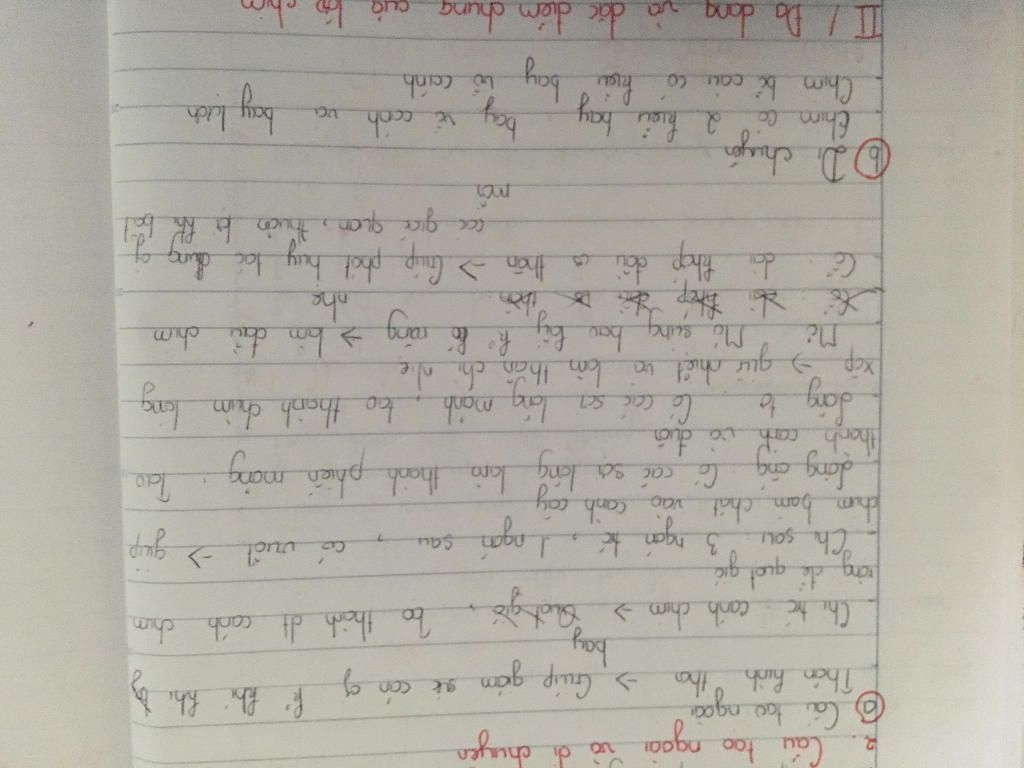 2. Cấu tạo ngoài và di chuyển
a Cấu tạo ngoài
Thân hình thoi → Giúp giảm sk cản of k² khi khi
bay
Chi tc: cánh chim → Quạt gió, Tạo thành dt cánh chim
rộng để quạt gió
Chi sau: 3 ngón tc, 1 ngón sau, có vuốt → giúp
chim bám chặt vào cành cây
Lông ống: Có các sợi lông làm thành phiến mỏng: Tạo
thành cánh và đuôi
Lông tơ: Có các sợi lông mảnh, tạo thành chùm lông
xốp → giữ nhiệt và làm thân chim nhẹ
Mỏ: Mỏ sừng bao lấy k² có răng → làm đầu chim
nhẹ
Cổ: dài khớp đầu vs thân → Giúp phát huy tác dụng of
các giác quan, thuận lợi khi bắt
mồi
b Di chuyển
Chim có 2 kiểu bay: bay vỗ cánh và bay lượn
Chim bồ câu có kiểu bay vỗ cánh
II / Đa dạng và đặc điểm chung của lớp chim